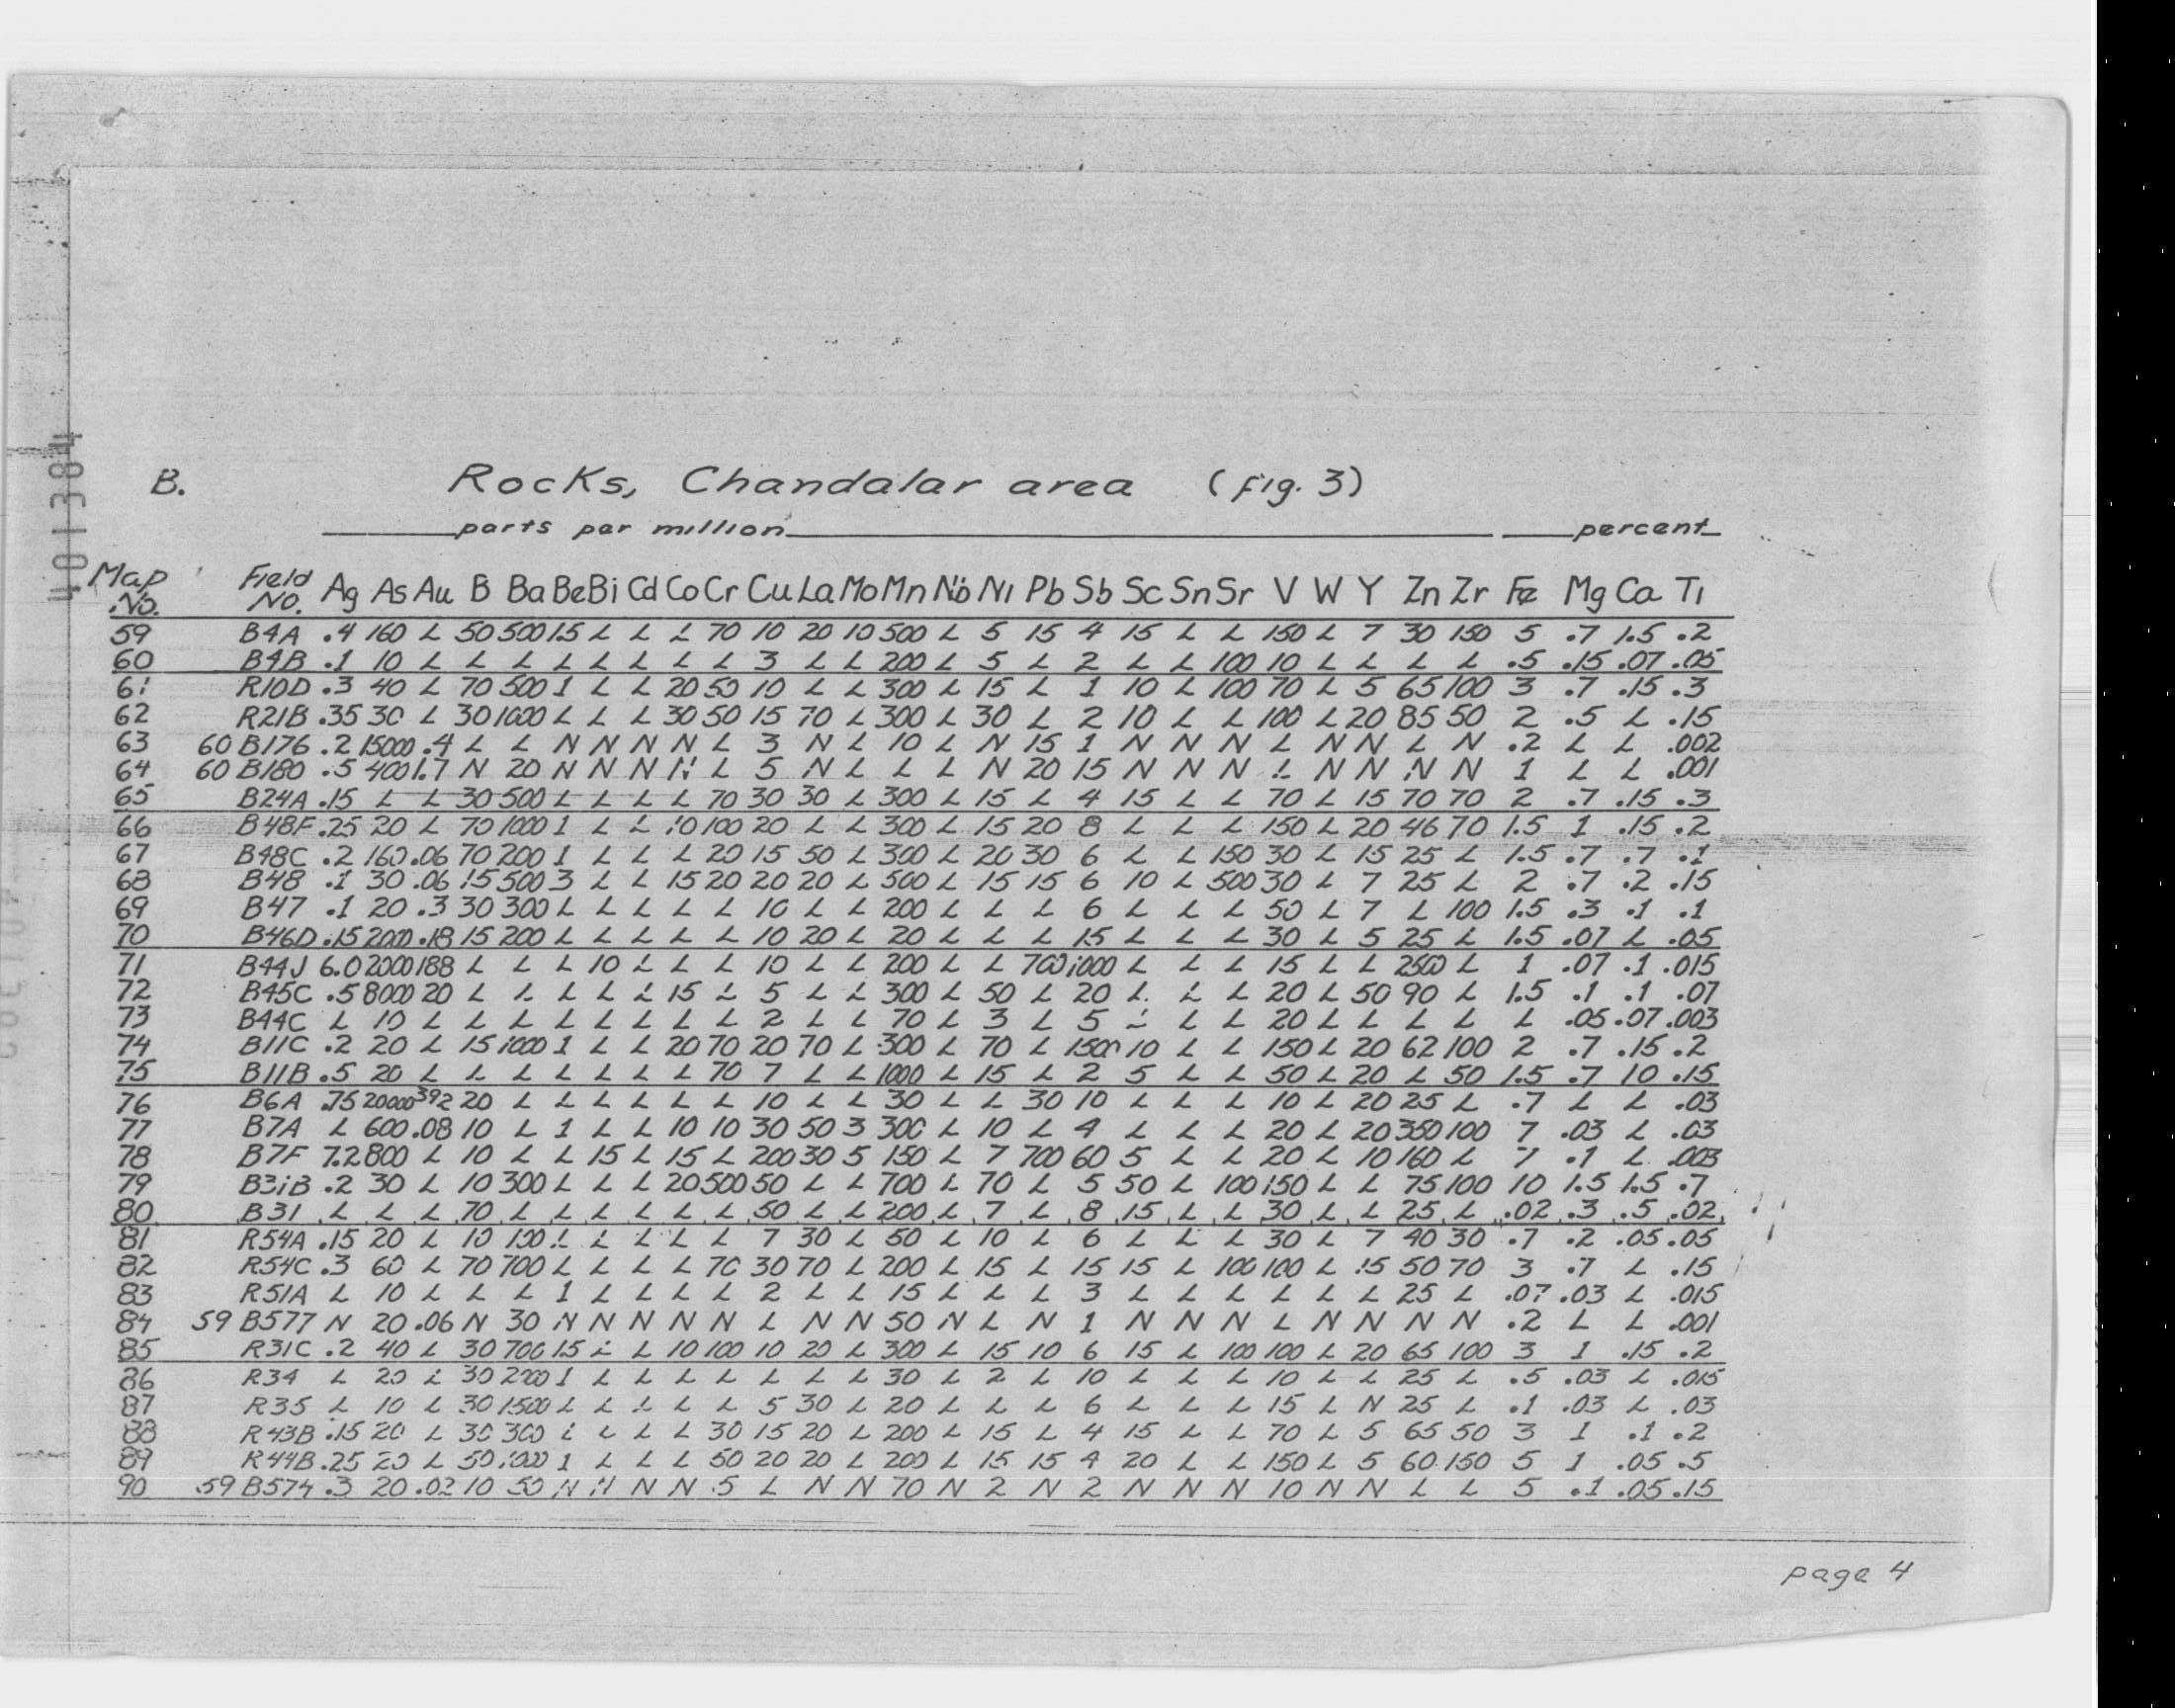 401384
B. Rocks, Chandalar area (fig. 3)
parts per million percent
Map No. Field No. Ag As Au B Ba Be Bi Cd Co Cr Cu La Mo Mn Nb Ni Pb Sb Sc Sn Sr V W Y Zn Zr Fe Mg Ca Ti
59 B4A .4 160 L 50 500 1.5 L L L 70 10 20 10 500 L 5 15 4 15 L L 150 L 7 30 150 5 .7 1.5 .2
60 B4B .1 10 L L L L L L L L 3 L L 200 L 5 L 2 L L 100 10 L L L L .5 .15 .07 .05
61 R10D .3 40 L 70 500 1 L L 20 50 10 L L 300 L 15 L 1 10 L 100 70 L 5 65 100 3 .7 .15 .3
62 R21B .35 30 L 30 1000 L L L 30 50 15 70 L 300 L 30 L 2 10 L L 100 L 20 85 50 2 .5 L .15
63 60 B176 .2 15000 .4 L L N N N N L 3 N L 10 L N 15 1 N N N L N N L N .2 L L .002
64 60 B180 .5 400 1.7 N 20 N N N N L 5 N L L L N 20 15 N N N L N N N N 1 L L .001
65 B24A .15 L L 30 500 L L L L 70 30 30 L 300 L 15 L 4 15 L L 70 L 15 70 70 2 .7 .15 .3
66 B48F .25 20 L 70 1000 1 L L 10 100 20 L L 300 L 15 20 8 L L L 150 L 20 46 70 1.5 1 .15 .2
67 B48C .2 160 .06 70 200 1 L L L 20 15 50 L 300 L 20 30 6 L L 150 30 L 15 25 L 1.5 .7 .7 .1
68 B48 .1 30 .06 15 500 3 L L 15 20 20 20 L 500 L 15 15 6 10 L 500 30 L 7 25 L 2 .7 .2 .15
69 B47 .1 20 .3 30 300 L L L L L 10 L L 200 L L L 6 L L L 50 L 7 L 100 1.5 .3 .1 .1
70 B46D .15 2000 .18 15 200 L L L L L 10 20 L 20 L L L 15 L L L 30 L 5 25 L 1.5 .07 L .05
71 B44J 6.0 2000 188 L L L 10 L L L 10 L L 200 L L 700 1000 L L L 15 L L 2500 L 1 .07 .1 .015
72 B45C .5 8000 20 L L L L L 15 L 5 L L 300 L 50 L 20 L L L 20 L 50 90 L 1.5 .1 .1 .07
73 B44C L 10 L L L L L L L L 2 L L 70 L 3 L 5 L L L 20 L L L L L .05 .07 .003
74 B11C .2 20 L 15 1000 1 L L 20 70 20 70 L 300 L 70 L 1500 10 L L 150 L 20 62 100 2 .7 .15 .2
75 B11B .5 20 L L L L L L L 70 7 L L 1000 L 15 L 2 5 L L 50 L 20 L 50 1.5 .7 10 .15
76 B6A .75 20000 392 20 L L L L L L 10 L L 30 L L 30 10 L L L 10 L 20 25 L .7 L L .03
77 B7A L 600 .08 10 L 1 L L 10 10 30 50 3 300 L 10 L 4 L L L 20 L 20 350 100 7 .03 L .03
78 B7F 7.2 800 L 10 L L 15 L 15 L 200 30 5 150 L 7 700 60 5 L L 20 L 10 160 L 7 .1 L .003
79 B31B .2 30 L 10 300 L L L 20 500 50 L L 700 L 70 L 5 50 L 100 150 L L 75 100 10 1.5 1.5 .7
80 B31 L L L 70 L L L L L L 50 L L 200 L 7 L 8 15 L L 30 L L 25 L .02 .3 .5 .02
81 R54A .15 20 L 10 100 L L L L L 7 30 L 50 L 10 L 6 L L L 30 L 7 40 30 .7 .2 .05 .05
82 R54C .3 60 L 70 700 L L L L 70 30 70 L 200 L 15 L 15 15 L 100 100 L 15 50 70 3 .7 L .15
83 R51A L 10 L L L 1 L L L L 2 L L 15 L L L 3 L L L L L L 25 L .07 .03 L .015
84 59 B577 N 20 .06 N 30 N N N N N L N N 50 N L N 1 N N N L N N N N .2 L L .001
85 R31C .2 40 L 30 700 1.5 L L 10 100 10 20 L 300 L 15 10 6 15 L 100 100 L 20 65 100 3 1 .15 .2
86 R34 L 20 L 30 2000 1 L L L L L L L 30 L 2 L 10 L L L 10 L L 25 L .5 .03 L .015
87 R35 L 10 L 30 1500 L L L L L 5 30 L 20 L L L 6 L L L 15 L N 25 L .1 .03 L .03
88 R43B .15 20 L 30 300 L L L L 30 15 20 L 200 L 15 L 4 15 L L 70 L 5 65 50 3 1 .1 .2
89 R44B .25 20 L 50 1000 1 L L L 50 20 20 L 200 L 15 15 4 20 L L 150 L 5 60 150 5 1 .05 .5
90 59 B574 .3 20 .02 10 50 N N N N 5 L N N 70 N 2 N 2 N N N 10 N N L L 5 .1 .05 .15
page 4